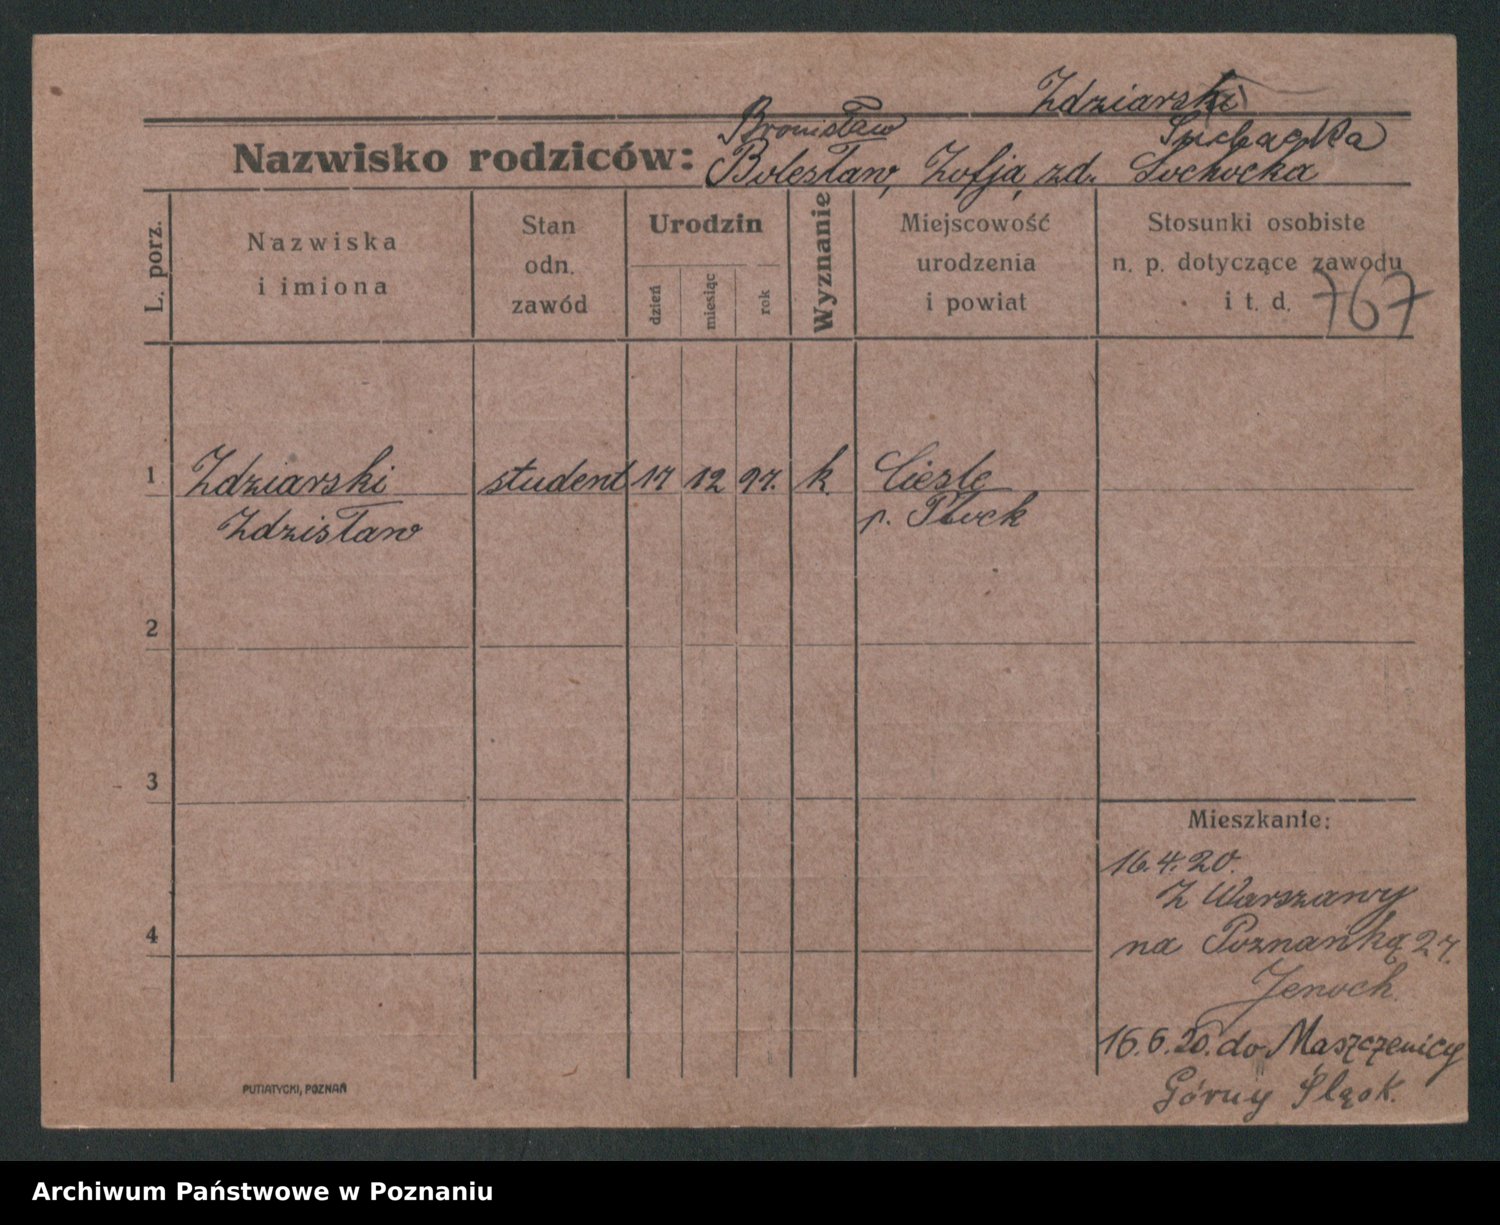 Zdziarski
Bronisław Suchaczka
Nazwisko rodziców: Bolesław, Zofja, zd. Sochocka
L. porz.
Nazwiska
i imiona
Stan
odn.
zawód
Urodzin
dzień
miesiąc
rok
Wyznanie
Miejscowość
urodzenia
i powiat
Stosunki osobiste
n. p. dotyczące zawodu
i t. d.
767
1 Zdziarski student 17 12 97. k. Cieśle
Zdzisław p. Płock
2
3
4
Mieszkanie:
16.4.20.
Z Warszawy
na Poznańką 27.
Jenoch.
16.6.20. do Maszczenicy
Górny Śląsk.
PUTIATYCKI, POZNAŃ
Archiwum Państwowe w Poznaniu